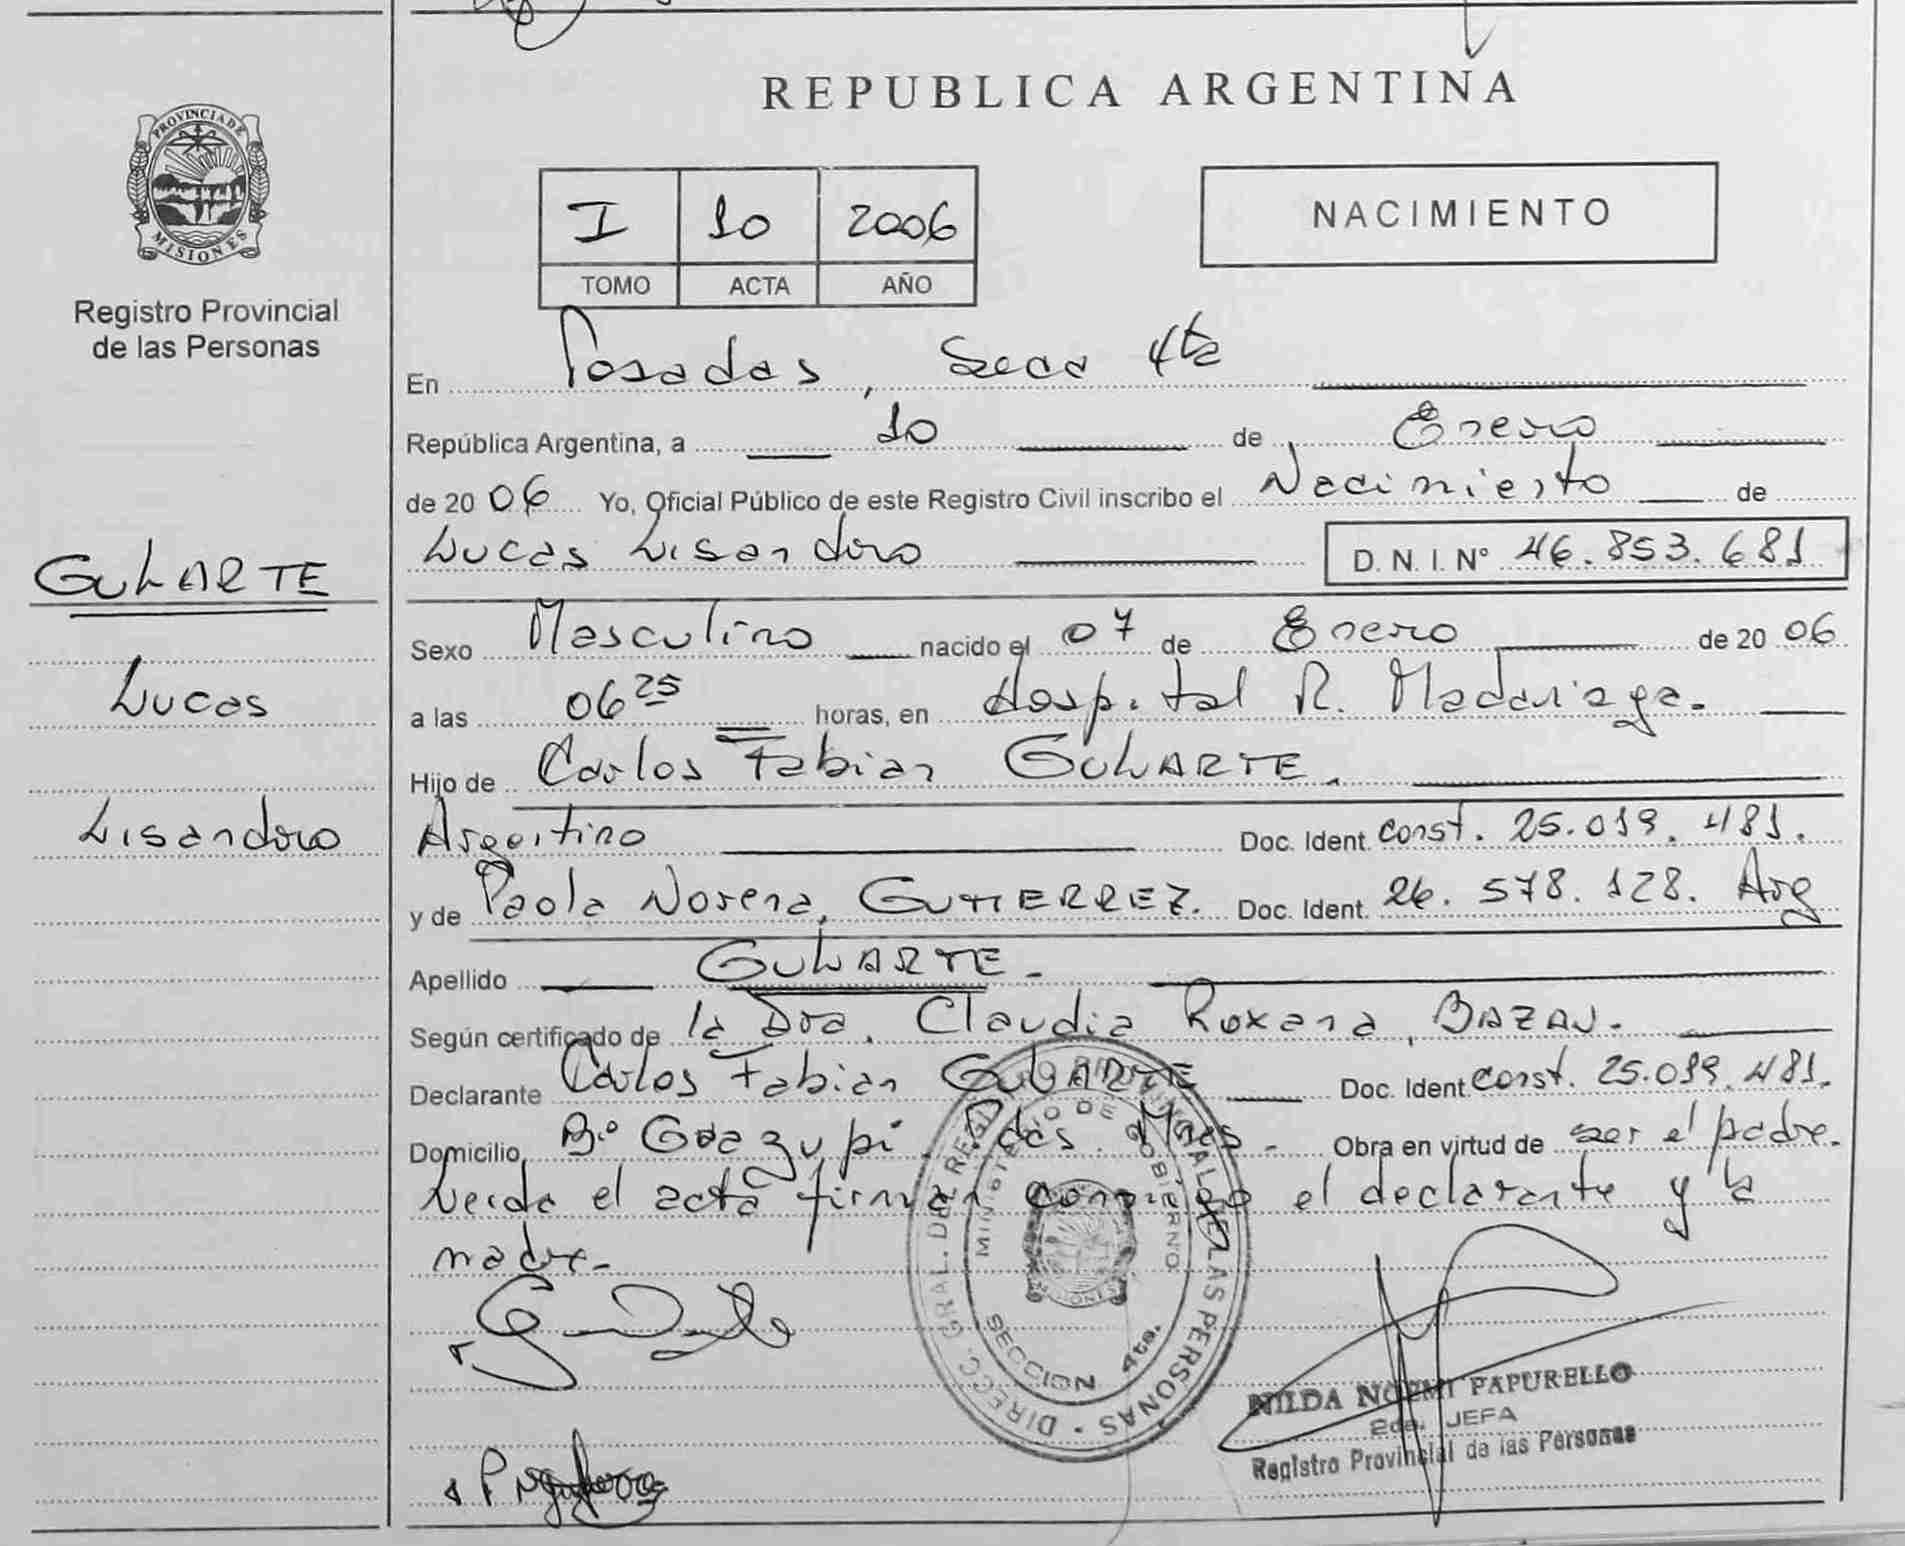 PROVINCIA DE
MISIONES
Registro Provincial
de las Personas
GULARTE
Lucas
Lisandro
REPUBLICA ARGENTINA
I 10 2006
TOMO ACTA AÑO
NACIMIENTO
En Posadas, Secc 4ta
República Argentina, a 10 de Enero
de 20 06 Yo, Oficial Público de este Registro Civil inscribo el Nacimiento de
Lucas Lisandro D. N. I. N° 46.853.681
Sexo Masculino nacido el 07 de Enero de 20 06
a las 06 25 horas, en Hospital R. Madariaga.
Hijo de Carlos Fabian GULARTE.
Argentino Doc. Ident. const. 25.019.481.
y de Paola Norena, GUTIERREZ. Doc. Ident. 26.578.128. Arg
Apellido GULARTE -
Según certificado de la Dra. Claudia Roxana, BAZAN.
Declarante Carlos Fabian GULARTE Doc. Ident const. 25.019.481.
Domicilio B° Pdas. Mnes - Obra en virtud de ser el padre.
Leida el acta firman conmigo el declarante y la
madre.-
DIRECC. GRAL. DEL REGISTRO PROVINCIAL DE LAS PERSONAS
MINISTERIO DE GOBIERNO
MISIONES
SECCION 4ta.
NILDA NOEMI PAPURELLO
2da. JEFA
Registro Provincial de las Personas